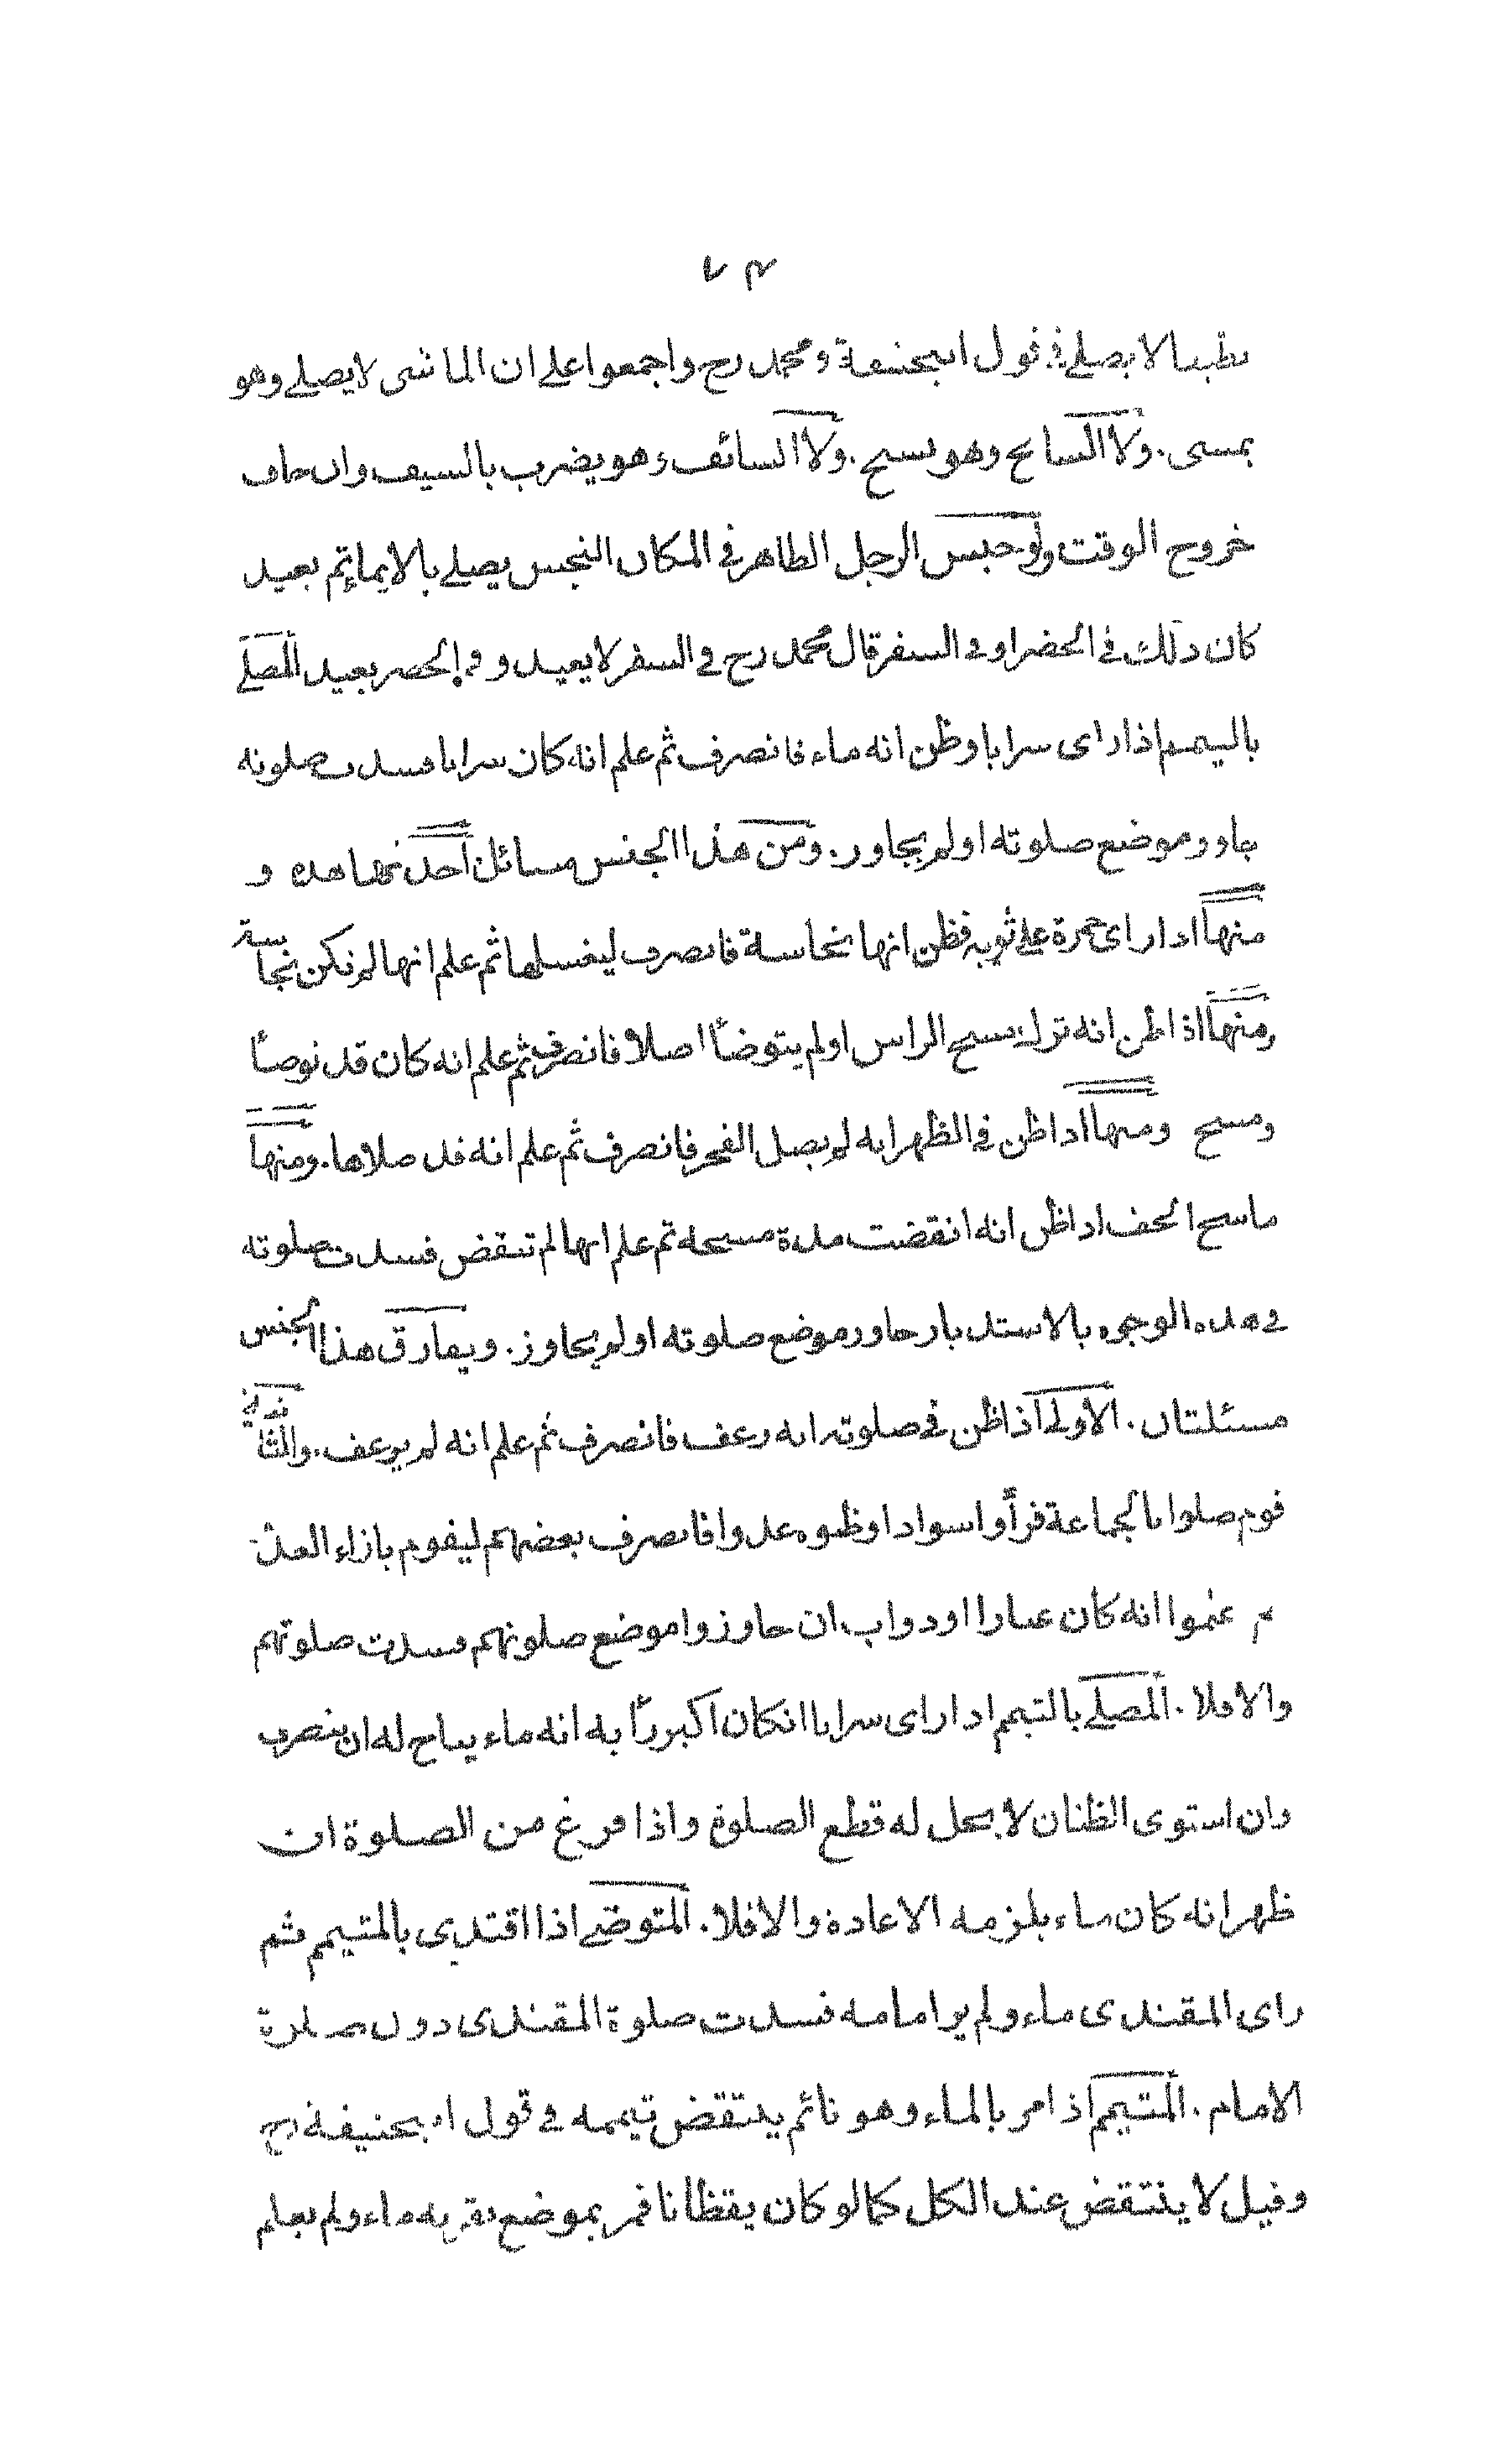 ٧٣
نظيفا لا يصلي في قول ابيحنيفة ومحمد رح واجمعوا على ان الماشي لا يصلي وهو
يمشى. ولا السابح وهو يسبح. ولا السائف وهو يضرب بالسيف وان خاف
خروج الوقت ولو حبس الرجل الطاهر في المكان النجس يصلي بالايماء ثم يعيد
كان ذلك في الحضر او في السفر قال محمد رح في السفر لا يعيد و في الحضر يعيد المصلي
بالتيمم اذا راى سرابا وظن انه ماء فانصرف ثم علم انه كان سرابا فسدت صلوته
جاوز موضع صلوته او لم يجاوز. ومن هذا الجنس مسائل احدٰها هذه و
منها اذا راى حمرة على ثوبه فظن انها نجاسة فانصرف ليغسلها ثم علم انها لم تكن نجاسة
ومنها اذا ظن انه ترك مسح الراس او لم يتوضأ اصلا فانصرف ثم علم انه كان قد توضأ
ومسح ومنها اذا ظن في الظهر انه لم يصل الفجر فانصرف ثم علم انه قد صلاها. ومنها
ماسح الخف اذا ظن انه انقضت مدة مسحه ثم علم انها لم تنقض فسدت صلوته
في هذه الوجوه بالاستدبار جاوز موضع صلوته او لم يجاوز. ويفارق هذا الجنس
مسئلتان. الاولى اذا ظن في صلوته انه رعف فانصرف ثم علم انه لم يرعف. والثانية
قوم صلوا بالجماعة فرأوا سوادا وظنوه عدوا فانصرف بعضهم ليقوم بازاء العدو
ثم علموا انه كان غبارا او دواب ان جاوزوا موضع صلوتهم فسدت صلوتهم
والا فلا. المصلي بالتيمم اذا راى سرابا انكان اكبر رأيه انه ماء يباح له ان ينصرف
وان استوى الظنان لا يحل له قطع الصلوة واذا فرغ من الصلوة ان
ظهر انه كان ماء يلزمه الاعادة والا فلا. المتوضي اذا اقتدى بالمتيمم ثم
راى المقتدى ماء ولم ير امامه فسدت صلوة المقتدى دون صلوة
الامام. المتيمم اذ امر بالماء وهو نائم ينتقض تيممه في قول ابيحنيفة رح
وقيل لا ينتقض عند الكل كما لو كان يقظانا فمر بموضع بقربه ماء ولم يعلم